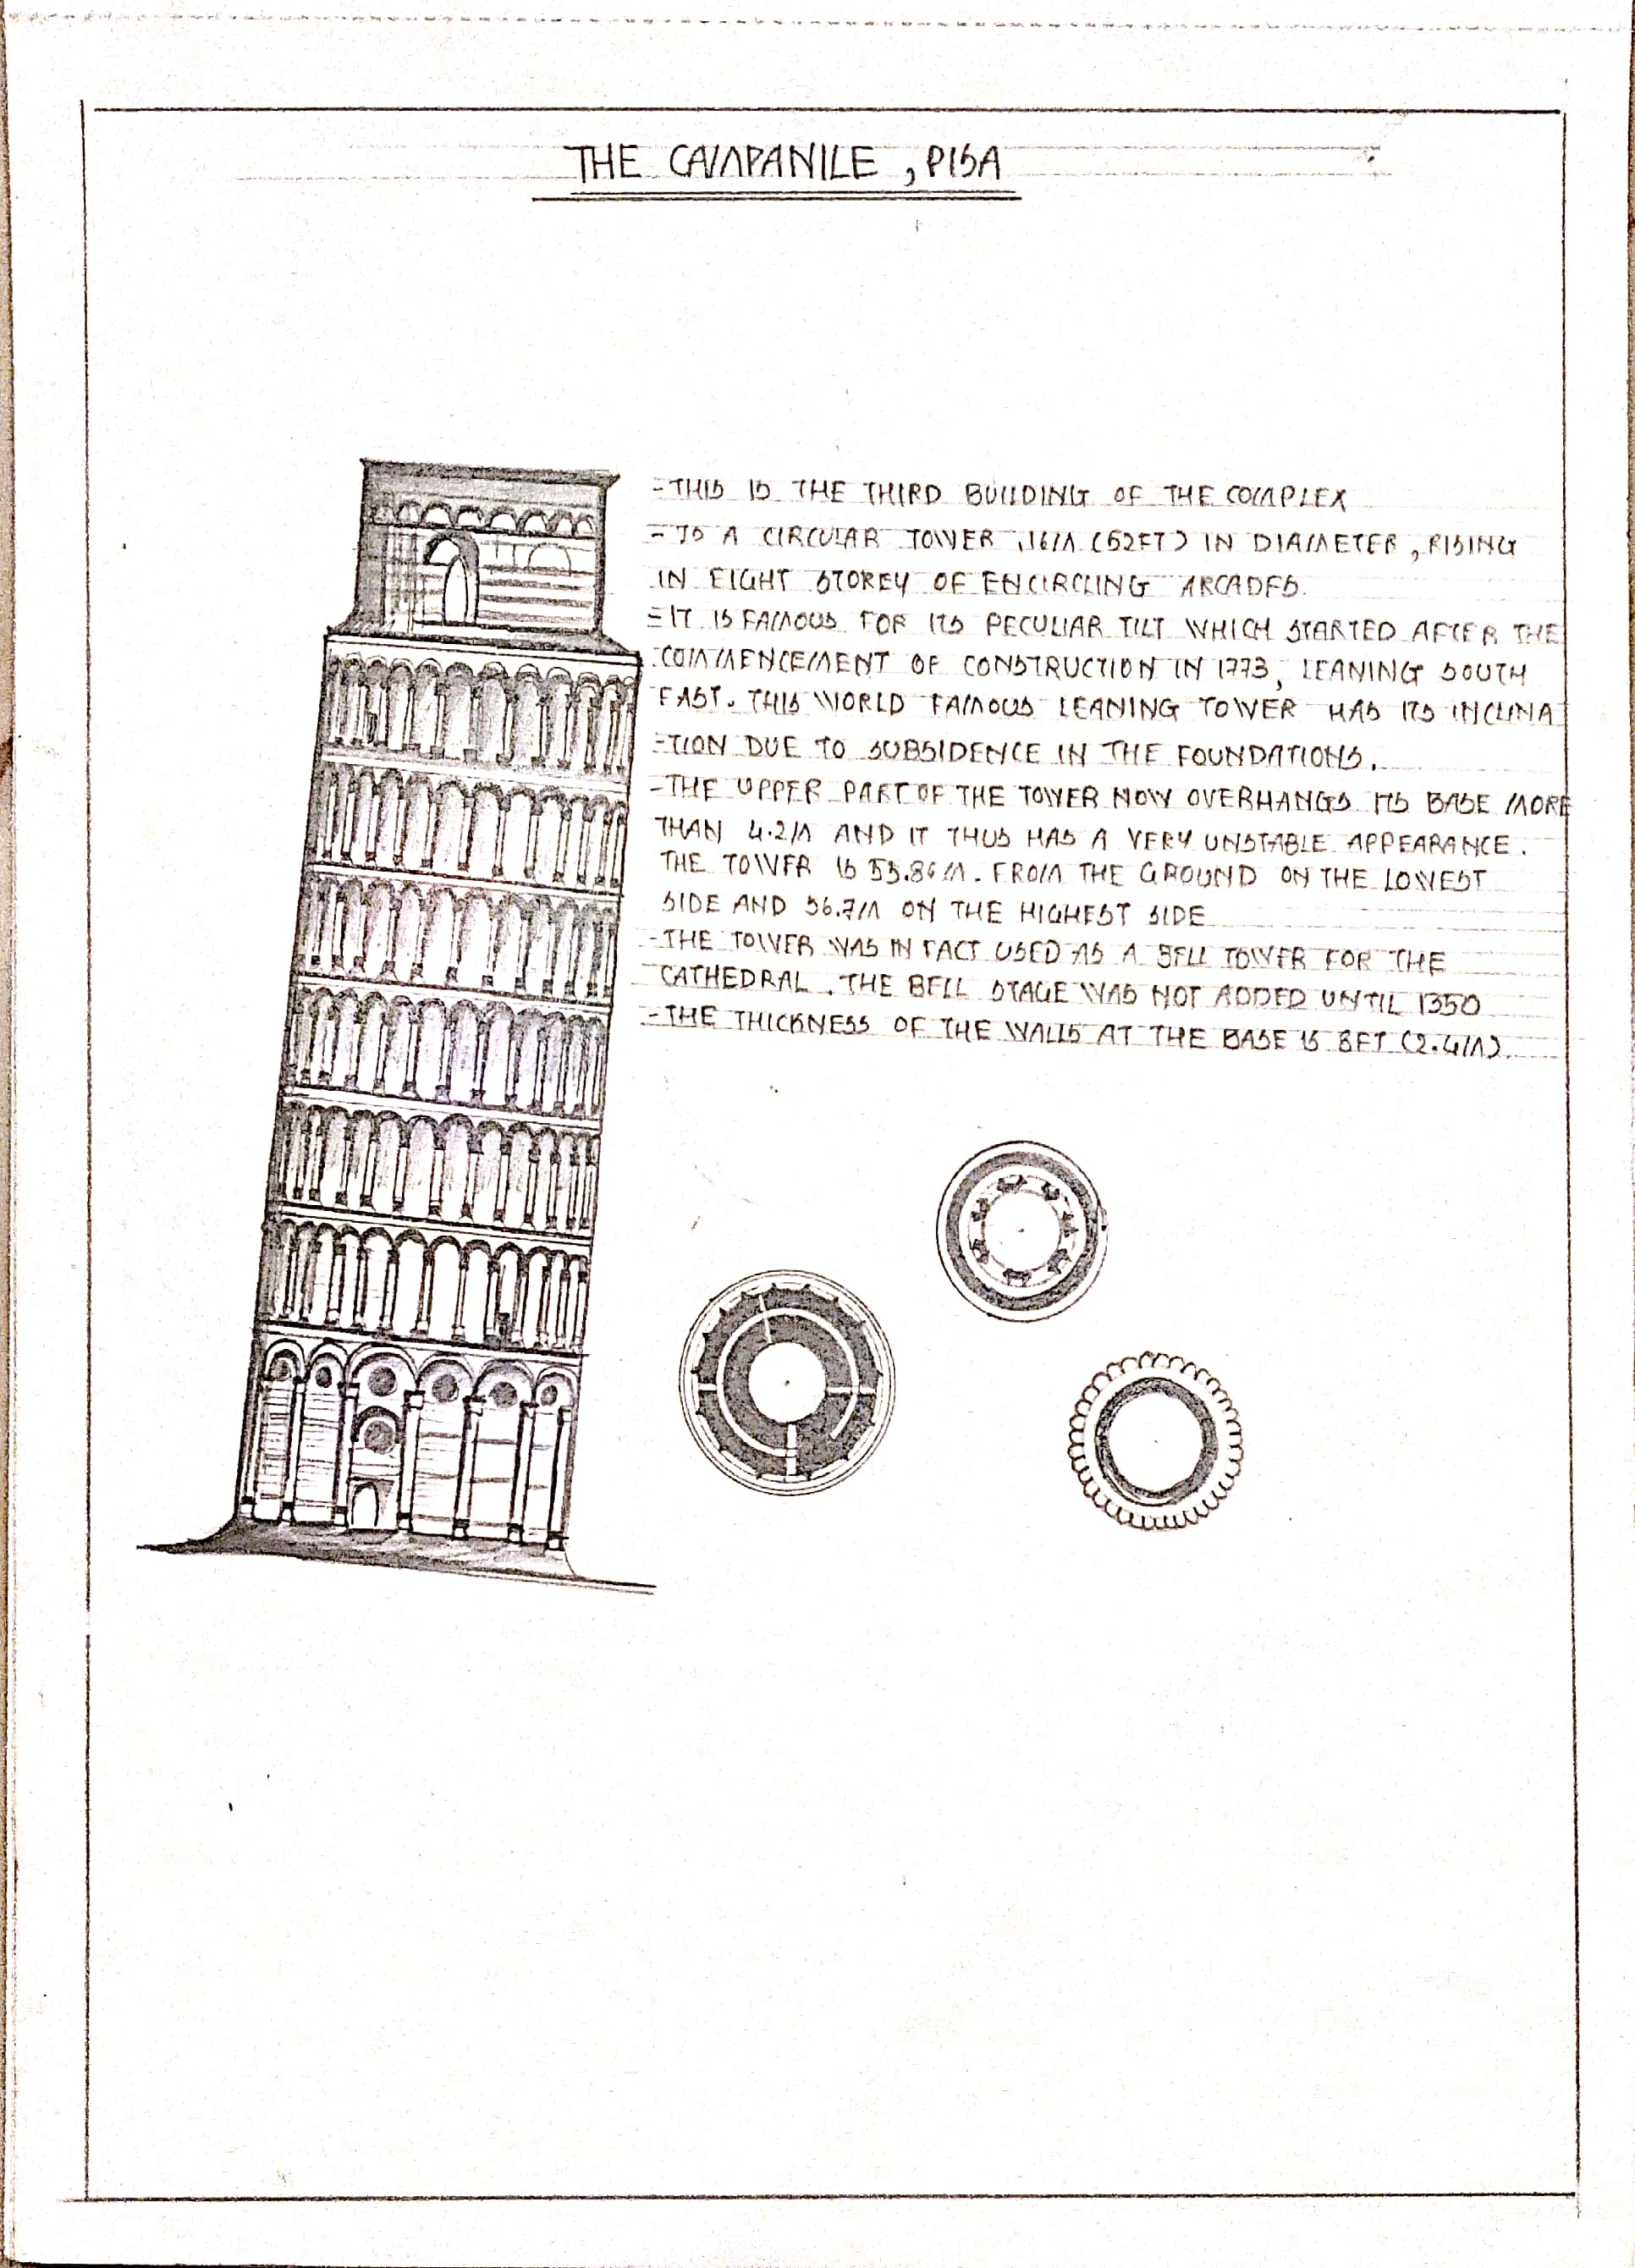 THE CAMPANILE, PISA
-THIS IS THE THIRD BUILDING OF THE COMPLEX
-IS A CIRCULAR TOWER, 16M (52FT) IN DIAMETER, RISING
IN EIGHT STOREY OF ENCIRCLING ARCADES.
-IT IS FAMOUS FOR ITS PECULIAR TILT WHICH STARTED AFTER THE
COMMENCEMENT OF CONSTRUCTION IN 1773, LEANING SOUTH
EAST. THIS WORLD FAMOUS LEANING TOWER HAS ITS INCLINA
-TION DUE TO SUBSIDENCE IN THE FOUNDATIONS.
-THE UPPER PART OF THE TOWER NOW OVERHANGS ITS BASE MORE
THAN 4.2M AND IT THUS HAS A VERY UNSTABLE APPEARANCE.
THE TOWER IS 55.86M. FROM THE GROUND ON THE LOWEST
SIDE AND 56.7M ON THE HIGHEST SIDE
-THE TOWER WAS IN FACT USED AS A BELL TOWER FOR THE
CATHEDRAL. THE BELL STAGE WAS NOT ADDED UNTIL 1350
-THE THICKNESS OF THE WALLS AT THE BASE IS 8FT (2.4M).